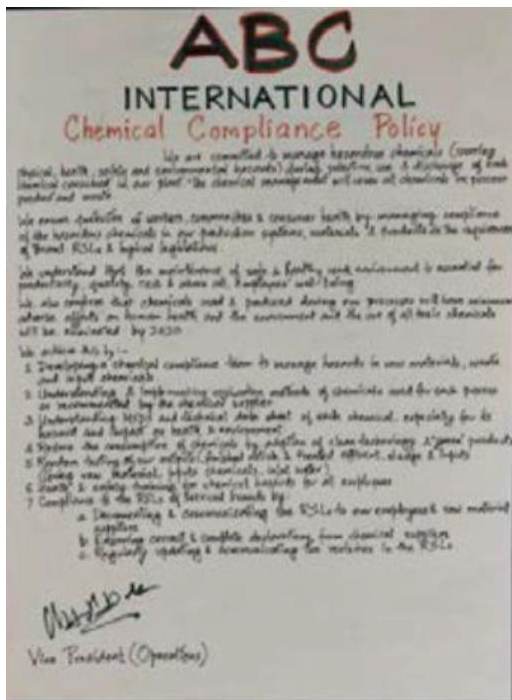 ABC
INTERNATIONAL
Chemical Compliance Policy
We are committed to manage hazardous chemicals (covering
physical, health, safety and environmental hazards) during selection, use & discharge of each
chemical consumed in our plant. The chemical management will cover all chemicals in process
product and waste
We ensure protection of workers, communities & consumer health by managing compliance
of the hazardous chemicals in our production systems, materials & products to the requirements
of Brand RSLs & legislations
We understand that the maintenance of safe & healthy work environment is essential for
productivity, quality, cost & above all, Employees well being
We also confirm that chemicals used & produced during our processes will have minimum
adverse effects on human health and the environment and the use of all toxic chemicals
will be eliminated by 2020
We achieve this by :-
1 Developing a chemical compliance team to manage hazards in raw materials, waste
and input chemicals
2 Understanding & implementing application methods of chemicals used for each process
as recommended by the chemical supplier
3 Understanding MSDS and technical data sheet of each chemical, especially for its
hazard and impact on health & environment
4 Reduce the consumption of chemicals by adoption of clean technology & green products
5 Random testing of our outputs (finished article & treated effluent, sludge & inputs
(using raw material, inputs chemicals, inlet water)
6 & safety training for chemical hazards for all employees
7 Compliance to the RSLs of Brands by
a Documenting & communicating the RSLs to our employees & raw material
suppliers
b Ensuring correct & complete declarations from chemical suppliers
c Regularly updating & communicating the revisions in the RSLs
Vice President (Operations)